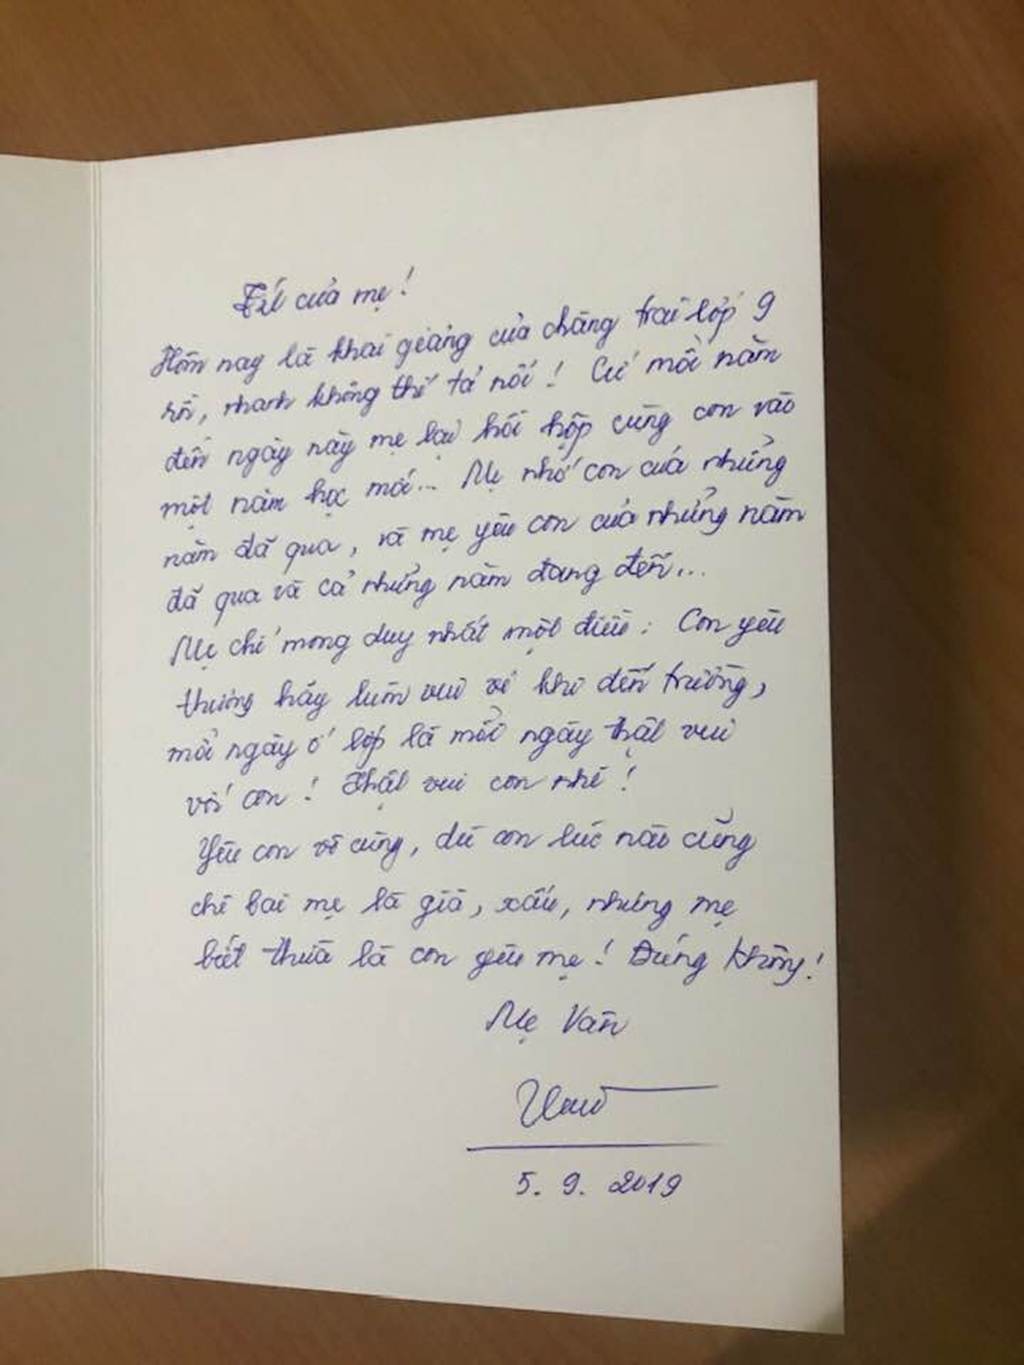 Tít của mẹ!
Hôm nay là khai giảng của chàng trai lớp 9
rồi, nhanh không thể tả nổi! Cứ mỗi năm
đến ngày này mẹ lại hồi hộp cùng con vào
một năm học mới... Mẹ nhớ con của những
năm đã qua, và mẹ yêu con của những năm
đã qua và cả những năm đang đến...
Mẹ chỉ mong duy nhất một điều: Con yêu
thương hãy luôn vui vẻ khi đến trường,
mỗi ngày ở lớp là mỗi ngày thật vui
với con! Thật vui con nhé!
Yêu con vô cùng, dù con lúc nào cũng
chê bai mẹ là già, xấu, nhưng mẹ
biết thừa là con yêu mẹ! Đúng không!
Mẹ Vân
5.9.2019